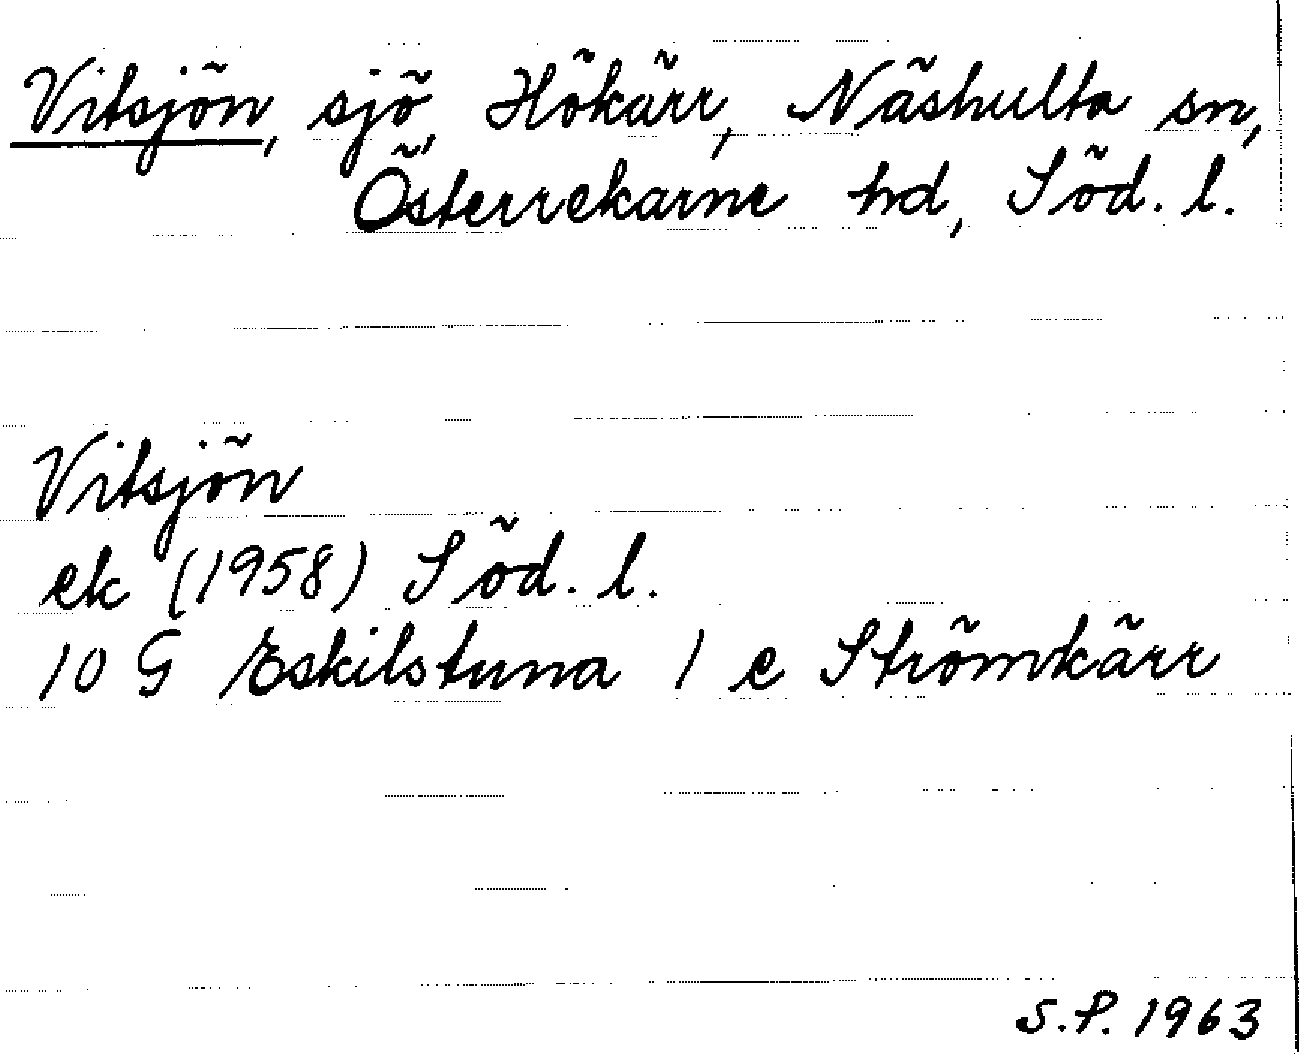 Vitsjön, sjö, Hökärr, Näshulta sn,
Österrekarne hd, Söd. l.
Vitsjön
ek (1958) Söd. l.
10 G Eskilstuna 1 e Strömkärr
S.P. 1963